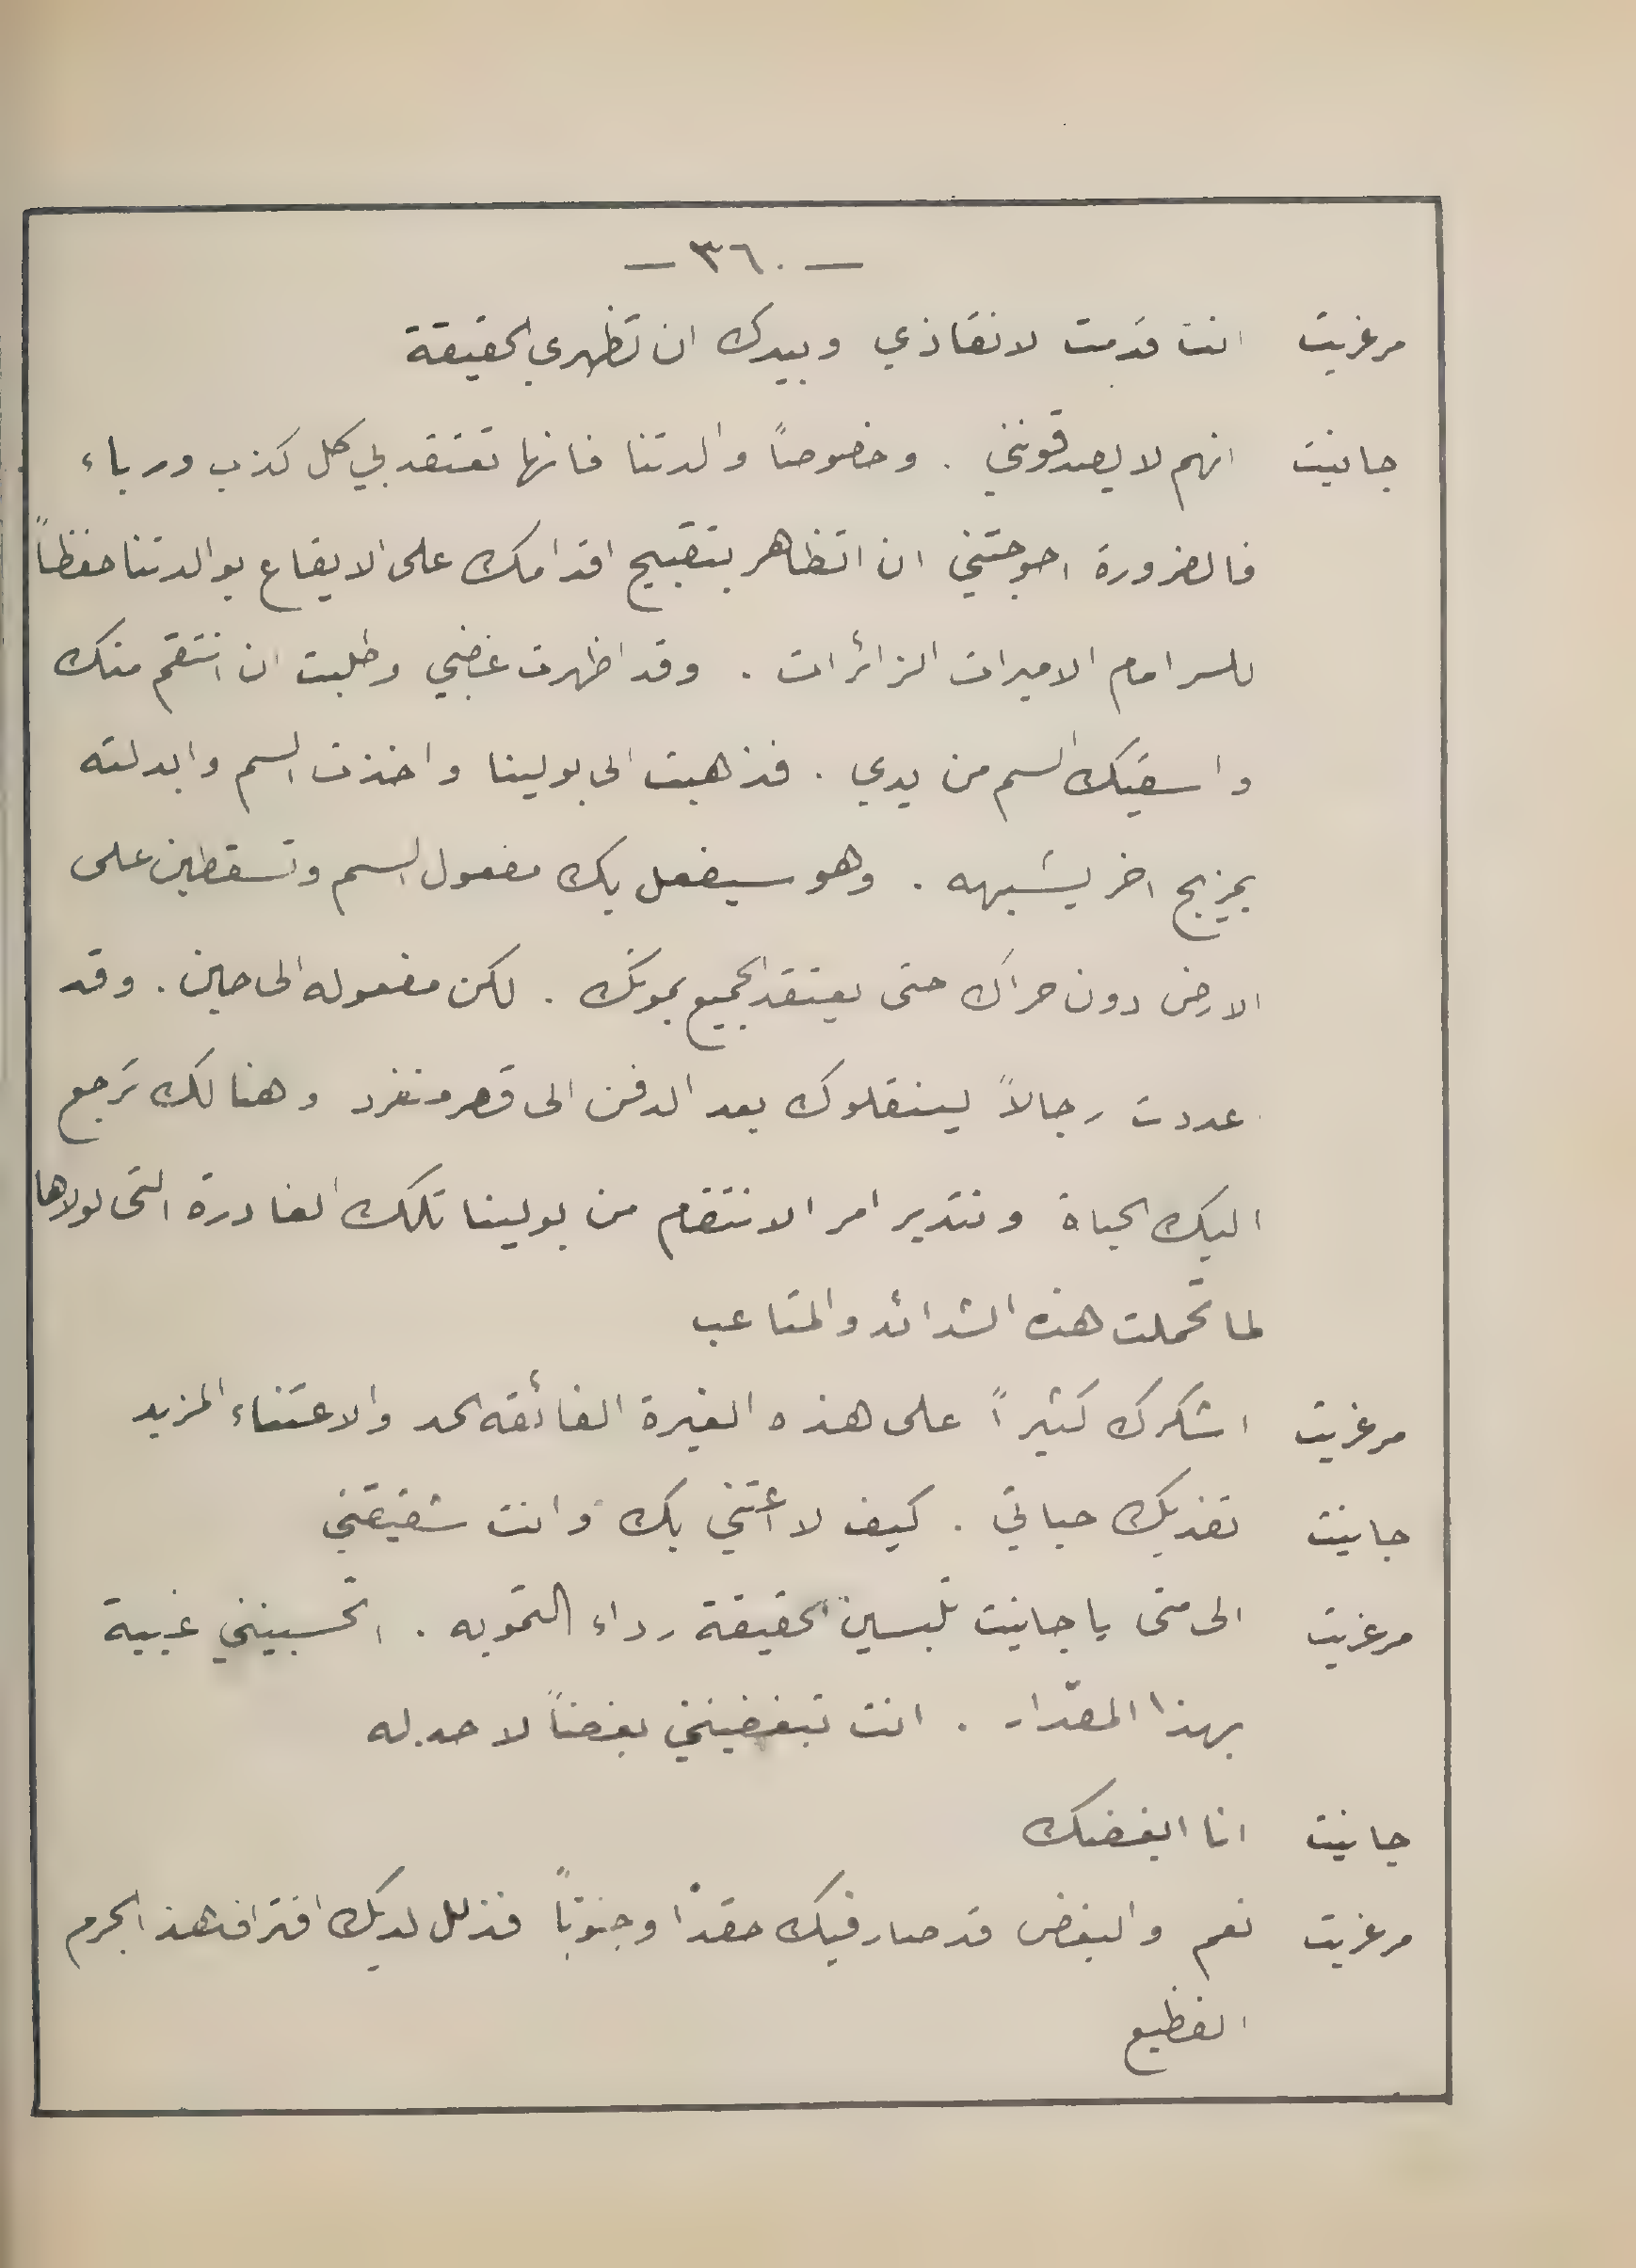 — ٣٦٠ —
مرغريت انت قدمت لانقاذي وبيدك ان تظهري الحقيقة
جانيت انهم لا يصدقونني . وخصوصاً والدتنا فانها تعتقد بي كل كذب ورياء
فالضرورة احوجتني ان اتظاهر بتقبيح اقدامك على الايقاع بوالدتنا حفظاً
للسر امام الاميرات الزائرات . وقد اظهرت غضبي وطلبت ان انتقم منك
واسقيك السم من يدي . فذهبت الى بولينا واخذت السم وابدلته
بمزيج اخر يشبهه . وهو سيفعل بك مفعول السم وتسقطين على
الارض دون حراك حتى يعتقد الجميع بموتك . لكن مفعوله الى حين . وقد
عددت رجالاً لينقلوك بعد الدفن الى قصر منفرد وهنالك ترجع
اليك الحياة ونتدبر امر الانتقام من بولينا تلك الغادرة التي لولاها
لما تحملت هذه الشدائد والمتاعب
مرغريت اشكرك كثيراً على هذه الغيرة الفائقه الحد والاعتناء المزيد
جانيت تفديك حياتي . كيف لا اعتني بك وانت شقيقتي
مرغريت الى متى يا جانيت تلبسين الحقيقة رداء التمويه . اتحسبينني غبية
بهذا المقدار . انت تبغضينني بغضاً لا حد له
جانيت انا ابغضك
مرغريت نعم والبغض قد صار فيك حقداً وجنوناً فذلل لديك اقتراف هذا الجرم
الفظيع